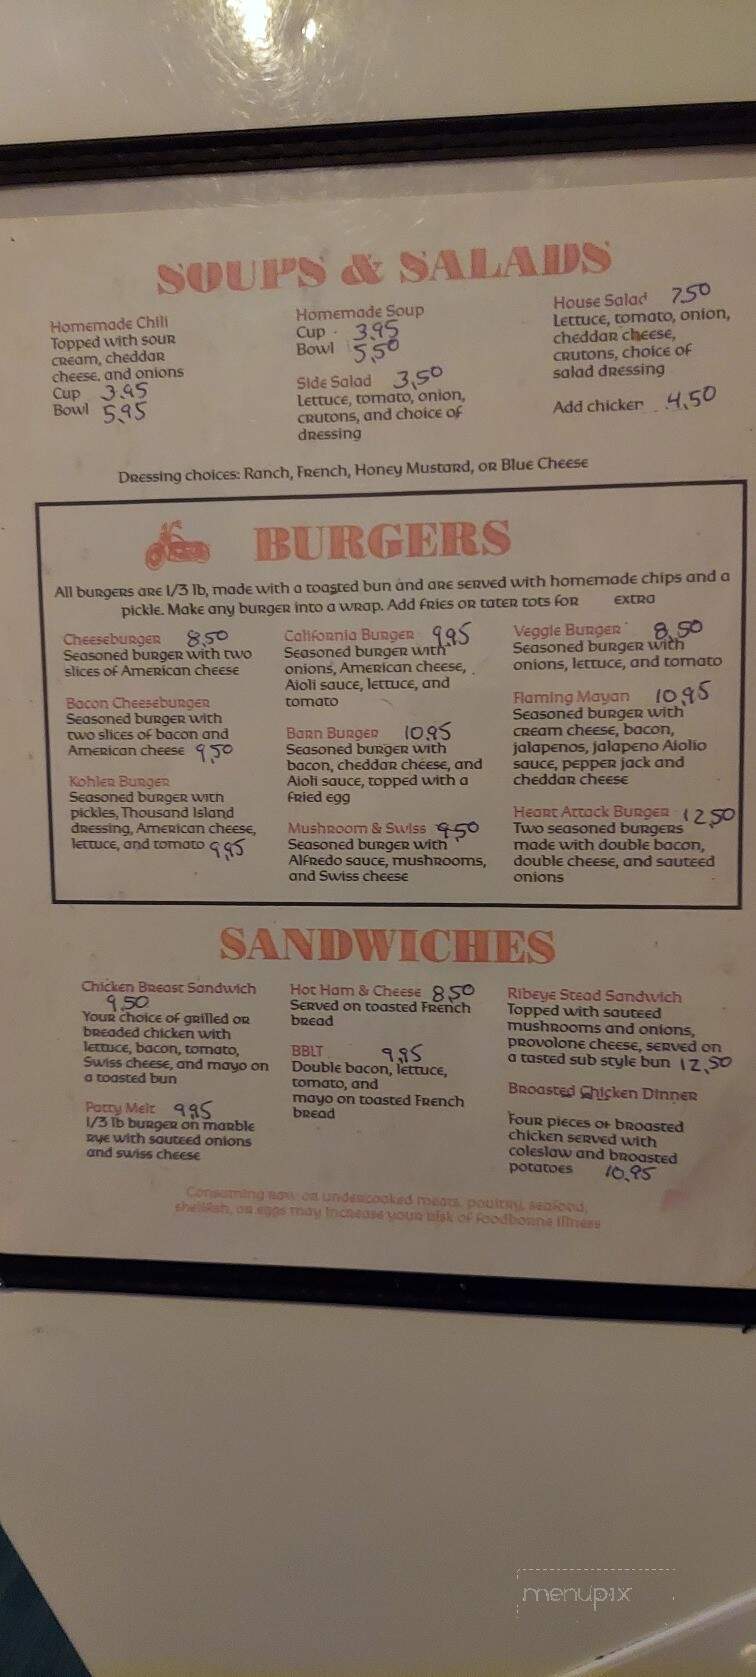 SOUPS & SALADS
Homemade Chili
Topped with sour
cream, cheddar
cheese, and onions
Cup 3.95
Bowl 5.95
Homemade Soup
Cup 3.95
Bowl 5.50
Side Salad 3,50
Lettuce, tomato, onion,
crutons, and choice of
dressing
House Salad 7.50
Lettuce, tomato, onion,
cheddar cheese,
crutons, choice of
salad dressing
Add chicker 4.50
Dressing choices: Ranch, French, Honey Mustard, or Blue Cheese
BURGERS
All burgers are 1/3 lb, made with a toasted bun and are served with homemade chips and a
pickle. Make any burger into a wrap. Add fries or tater tots for extra
Cheeseburger 8.50
Seasoned burger with two
slices of American cheese
Bacon Cheeseburger
Seasoned burger with
two slices of bacon and
American cheese 9.50
Kohler Burger
Seasoned burger with
pickles, Thousand Island
dressing, American cheese,
lettuce, and tomato 9.95
California Burger 9.95
Seasoned burger with
onions, American cheese,
Aioli sauce, lettuce, and
tomato
Barn Burger 10.95
Seasoned burger with
bacon, cheddar cheese, and
Aioli sauce, topped with a
fried egg
Mushroom & Swiss 9.50
Seasoned burger with
Alfredo sauce, mushrooms,
and Swiss cheese
Veggie Burger 8.50
Seasoned burger with
onions, lettuce, and tomato
Flaming Mayan 10.95
Seasoned burger with
cream cheese, bacon,
jalapenos, jalapeno Aiolio
sauce, pepper jack and
cheddar cheese
Heart Attack Burger 12.50
Two seasoned burgers
made with double bacon,
double cheese, and sauteed
onions
SANDWICHES
Chicken Breast Sandwich
9.50
Your choice of grilled or
breaded chicken with
lettuce, bacon, tomato,
Swiss cheese, and mayo on
a toasted bun
Patty Melt 9.95
1/3 lb burger on marble
rye with sauteed onions
and swiss cheese
Hot Ham & Cheese 8.50
Served on toasted French
bread
BBLT 9.95
Double bacon, lettuce,
tomato, and
mayo on toasted French
bread
Ribeye Stead Sandwich
Topped with sauteed
mushrooms and onions,
provolone cheese, served on
a tasted sub style bun 12.50
Broasted Chicken Dinner
Four pieces of broasted
chicken served with
coleslaw and broasted
potatoes 10.95
Consuming raw or undercooked meats, poultry, seafood,
shellfish, or eggs may increase your risk of foodborne illness
menupix